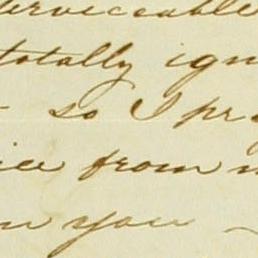 serviceable
totally ign
- so I pra
ice from
you -